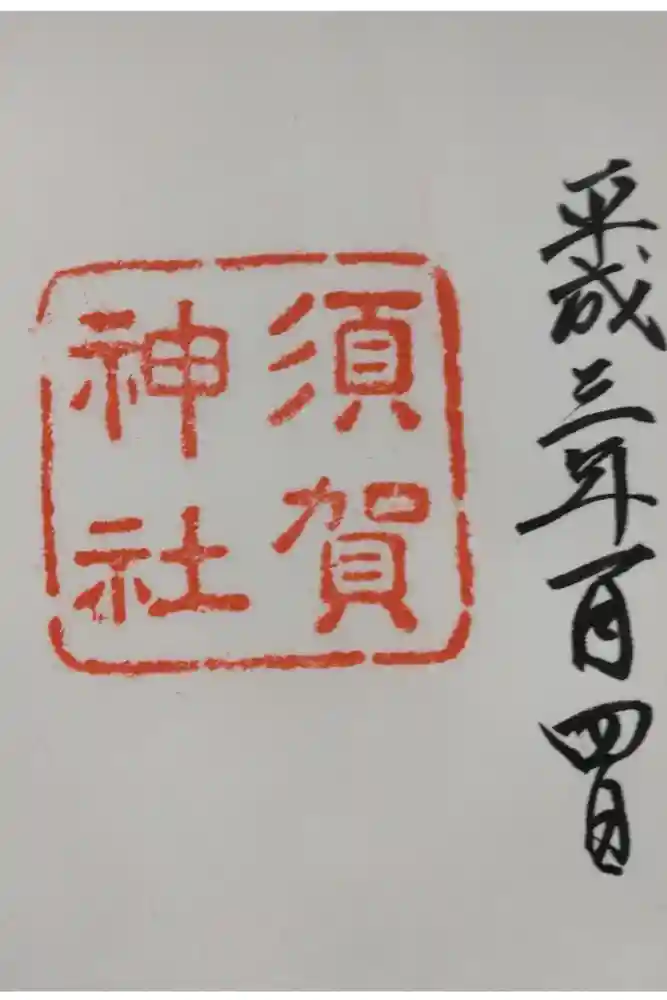 平成三年一月四日
須賀
神社